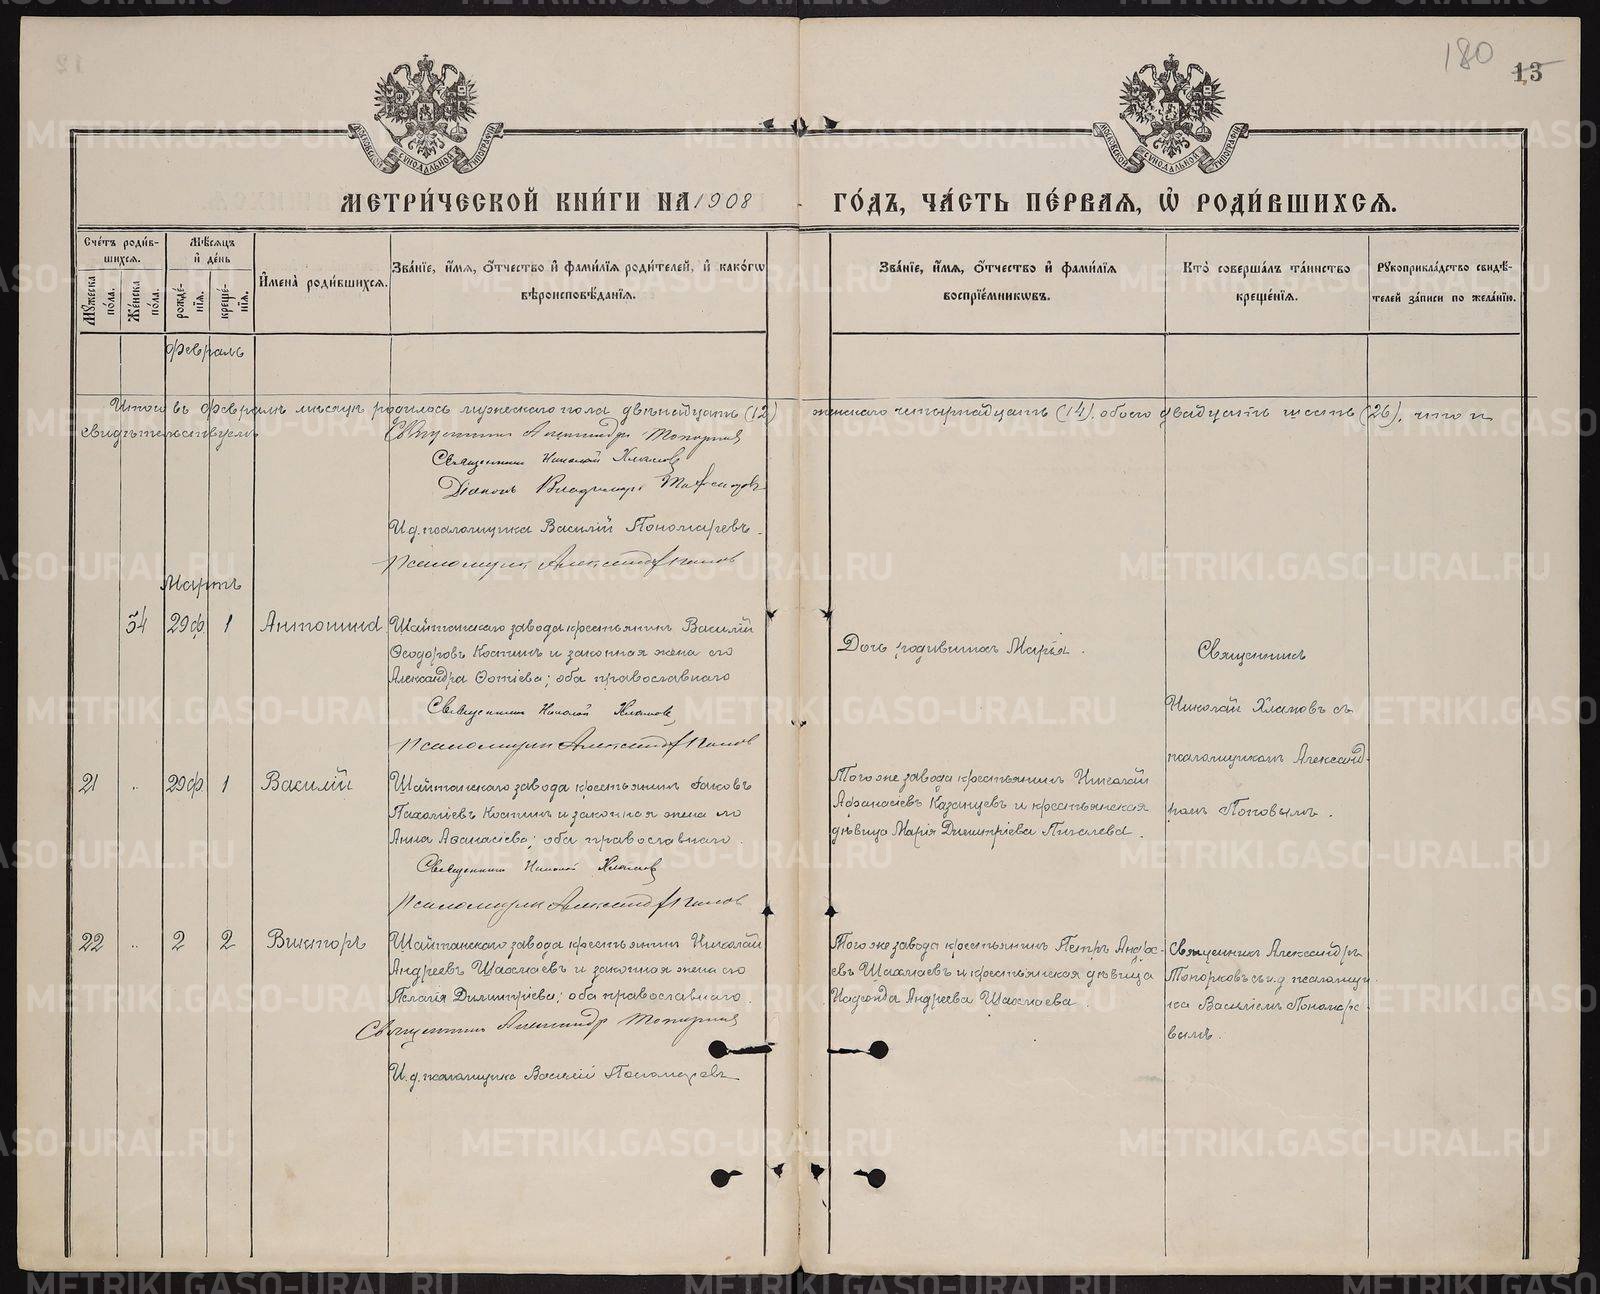 180
13
МОСКОВСКОЙ СѴНОДАЛЬНОЙ ТИПОГРАФІИ
МОСКОВСКОЙ СѴНОДАЛЬНОЙ ТИПОГРАФІИ
МЕТРИ́ЧЕСКОЙ КНИ́ГИ НА 1908
ГО́ДЪ, ЧА́СТЬ ПЕ́РВАЯ, Ѡ РОДИ́ВШИХСѦ.
Сче́тъ роди́в-
шихсѧ.
Мꙋ́жеска по́ла.
Же́нска по́ла.
Мѣ́сѧцъ
и҆ де́нь
рожде́-
нїѧ.
креще́-
нїѧ.
И҆мена̀ роди́вшихсѧ.
Зва́нїе, и҆́мѧ, ѻ҆́тчество и҆ фами́лїѧ роди́телей, и҆ како́гѡ
вѣроисповѣ́данїѧ.
Зва́нїе, и҆́мѧ, ѻ҆́тчество и҆ фами́лїѧ
воспрїе́мникѡвъ.
Кто̀ соверша́лъ та́инство
креще́нїѧ.
Рꙋкоприкла́дство свидѣ́-
телей за́писи по жела́нїю.
Февраль
Итого въ Февралѣ мѣсяцѣ родилось мужескаго пола двѣнадцать (12) женскаго четырнадцать (14), обоего двадцать шесть (26), что и
свидѣтельствуемъ
Священникъ Александръ Топорковъ
Священникъ Николай Хламовъ
Діаконъ Владиміръ
И.д. псаломщика Василій Пономаревъ.
Псаломщикъ Александръ Поповъ
Мартъ
34 29ф 1 Антонина
Шайтанскаго завода крестьянинъ Василій
Ѳеодоровъ Костинъ и законная жена его
Александра Фотіева; оба православнаго
Священникъ Николай Хламовъ
Псаломщикъ Александръ Поповъ
Дочь родившихъ Марія.
Священникъ
Николай Хламовъ съ
псаломщикомъ Александ-
ромъ Поповымъ.
21 „ 29ф 1 Василій
Шайтанскаго завода крестьянинъ Іаковъ
Пахоміевъ Костинъ и законная жена его
Анна Аѳанасіева; оба православнаго.
Священникъ Николай Хламовъ
Псаломщикъ Александръ Поповъ
Того же завода крестьянинъ Николай
Аѳанасіевъ Казанцевъ и крестьянская
дѣвица Марія Димитріева Пигалева.
22 „ 2 2 Викторъ
Шайтанскаго завода крестьянинъ Николай
Андреевъ Шахмаевъ и законная жена его
Пелагія Димитріева; оба православнаго.
Священникъ Александръ Топорковъ
И.д. псаломщика Василій Пономаревъ
Того же завода крестьянинъ Петръ Андре-
евъ Шахмаевъ и крестьянская дѣвица
Надежда Андреева Шахмаева.
Священникъ Александръ
Топорковъ съ и.д псаломщи-
ка Василіемъ Пономаре-
вымъ.
METRIKI.GASO-URAL.RU